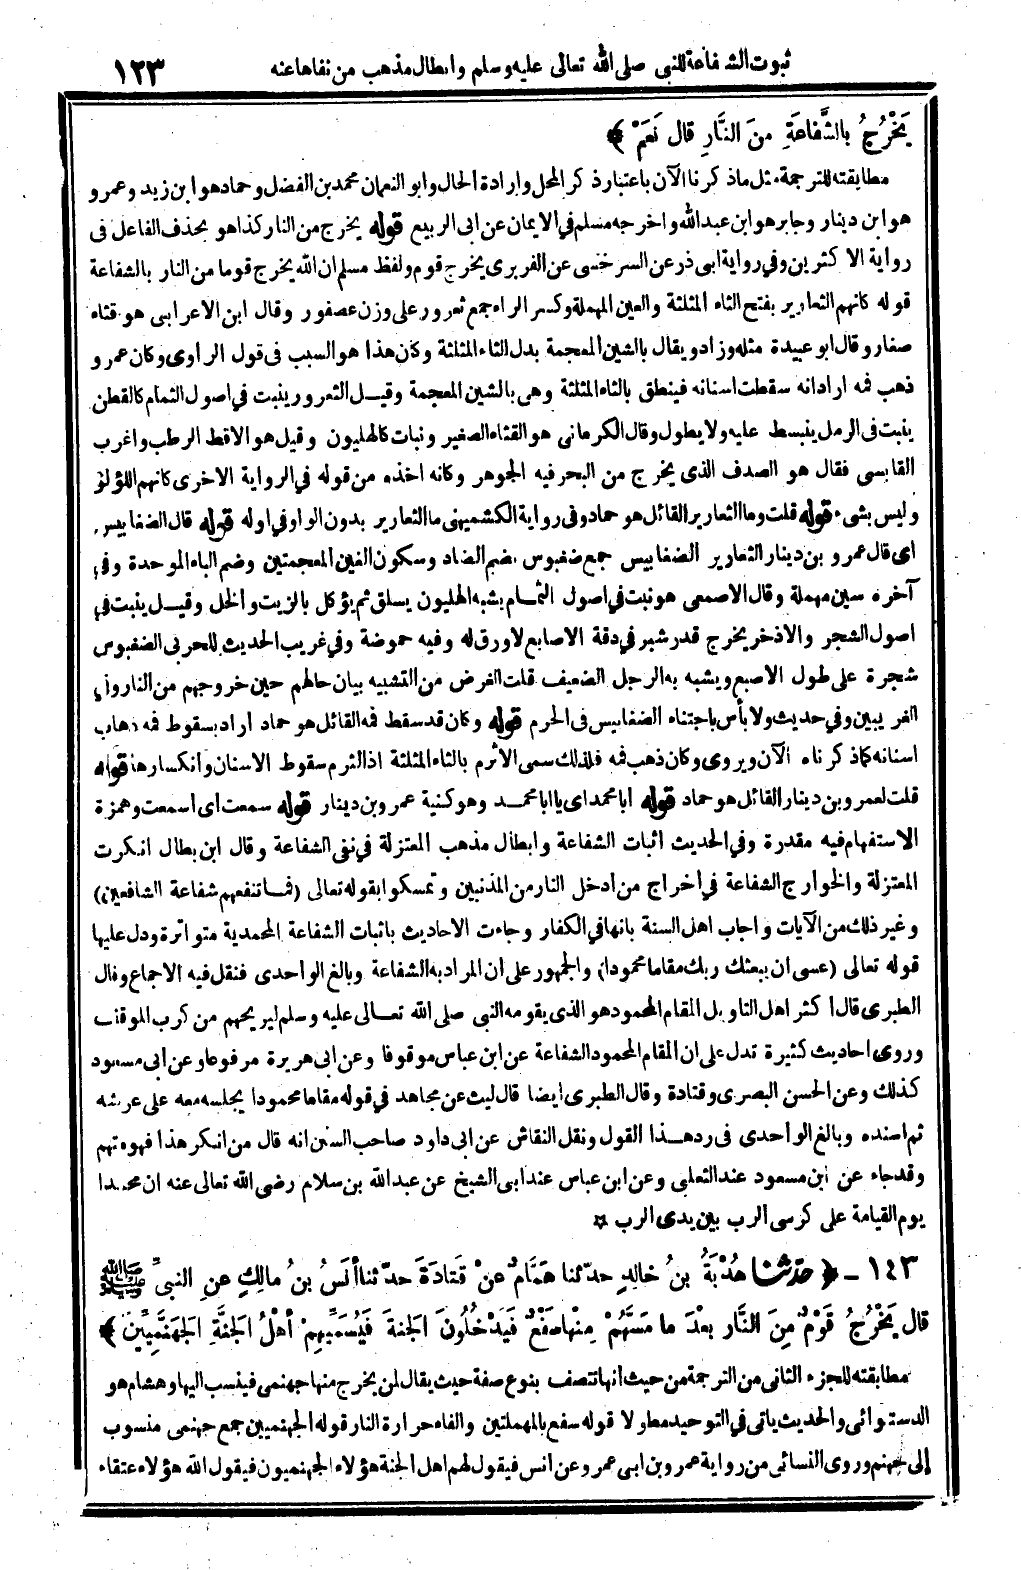 ثبوت الشفاعة للنبي صلى الله تعالى عليه وسلم وابطال مذهب من نفاها عنه ١٢٣
يَخْرُجُ بالشَّفاعَةِ مِنَ النَّارِ قال نَعَمْ ﴾
مطابقته للترجمة مثل ما ذكرنا الآن باعتبار ذكر المحل وارادة الحال وابو النعمان محمد بن الفضل وحماد هو ابن زيد وعمرو
هو ابن دينار وجابر هو ابن عبد الله واخرجه مسلم في الايمان عن ابى الربيع قوله يخرج من النار كذا هو بحذف الفاعل فى
رواية الا كثرين وفي رواية ابى ذر عن السرخسى عن الفربرى يخرج قوم ولفظ مسلم ان الله يخرج قوما من النار بالشفاعة
قوله كانهم الثعارير بفتح الثاء المثلثة والعين المهملة وكسر الراء جمع ثعرور على وزن عصفور وقال ابن الاعرابى هو قثاء
صغار وقال ابو عبيدة مثله وزاد ويقال بالشين المعجمة بدل الثاء المثلثة وكان هذا هو السبب فى قول الراوى وكان عمرو
ذهب فمه ارادانه سقطت اسنانه فينطق بالثاء المثلثة وهى بالشين المعجمة وقيل الثعرور ينبت في اصول الثمام كالقطن
ينبت فى الرمل ينبسط عليه ولا يطول وقال الكرمانى هو القثاء الصغير ونبات كالهليون وقيل هو الاقط الرطب واغرب
القابسى فقال هو الصدف الذى يخرج من البحر فيه الجوهر وكانه اخذه من قوله في الرواية الاخرى كانهم اللؤلؤ
وليس بشىء قوله قلت وما الثعارير القائل هو حماد وفى رواية الكشميهنى ما الثعارير بدون الواو في اوله قوله قال الضغابيس
اى قال عمرو بن دينار الثعارير الضغابيس جمع ضغبوس بضم الضاد وسكون الغين المعجمتين وضم الباء الموحدة وفي
آخره سين مهملة وقال الاصمعى هو نبت في اصول الثمام يشبه الهليون يسلق ثم يؤكل بالزيت والخل وقيل ينبت في
اصول الشجر والاذخر يخرج قدر شبر في دقة الاصابع لا ورق له وفيه حموضة وفي غريب الحديث للحربى الضغبوس
شجرة على طول الاصبع ويشبه به الرجل الضعيف قلت الغرض من التشبيه بيان حالهم حين خروجهم من النار وفي
الغريبين وفي حديث ولا بأس باجتناء الضغابيس فى الحرم قوله وكان قد سقط فمه القائل هو حماد اراد بسقوط فمه ذهاب
اسنانه كما ذكرناه الآن ويروى وكان ذهب فمه فلذلك سمى الأثرم بالثاء المثلثة اذ الثرم سقوط الاسنان وانكسارها قوله
قلت لعمرو بن دينار القائل هو حماد قوله ابا محمد اى يا ابا محمد وهو كنية عمرو بن دينار قوله سمعت اى اسمعت وهمزة
الاستفهام فيه مقدرة وفي الحديث اثبات الشفاعة وابطال مذهب المعتزلة في نفى الشفاعة وقال ابن بطال انكرت
المعتزلة والخوارج الشفاعة في اخراج من ادخل النار من المذنبين وتمسكوا بقوله تعالى (فما تنفعهم شفاعة الشافعين)
وغير ذلك من الآيات واجاب اهل السنة بانها في الكفار وجاءت الاحاديث باثبات الشفاعة المحمدية متواترة ودل عليها
قوله تعالى (عسى ان يبعثك ربك مقاما محمودا) والجمهور على ان المراد به الشفاعة وبالغ الواحدى فنقل فيه الاجماع وقال
الطبرى قال اكثر اهل التاويل المقام المحمود هو الذى يقومه النبى صلى الله تعالى عليه وسلم ليريحهم من كرب الموقف
وروى احاديث كثيرة تدل على ان المقام المحمود الشفاعة عن ابن عباس موقوفا وعن ابى هريرة مرفوعا وعن ابى مسعود
كذلك وعن الحسن البصرى وقتادة وقال الطبرى ايضا قال ليث عن مجاهد في قوله مقاما محمودا يجلسه معه على عرشه
ثم اسنده وبالغ الواحدى فى رد هذا القول ونقل النقاش عن ابى داود صاحب السنن انه قال من انكر هذا فهو متهم
وقد جاء عن ابن مسعود عند الثعلبى وعن ابن عباس عند ابى الشيخ عن عبد الله بن سلام رضى الله تعالى عنه ان محمدا
يوم القيامة على كرسى الرب بين يدى الرب ☆
١٤٣ - ﴿ حدّثنا هُدْبَةُ بنُ خالِدٍ حدّثنا هَمَّامٌ عنْ قَتادَةَ حدّثنا أنَسُ بنُ مالِكٍ عنِ النبيِّ ﷺ
قال يَخْرُجُ قَوْمٌ مِنَ النَّارِ بعْدَ ما مَسَّهُمْ مِنْها سَفْعٌ فَيَدْخُلُونَ الجَنةَ فَيُسَمِّيهِمْ أهْلُ الجَنَّةِ الجَهَنَّمِيِّينَ ﴾
مطابقته للجزء الثانى من الترجمة من حيث انها تتصف بنوع صفة حيث يقال لمن يخرج منها جهنمى فينسب اليها وهشام هو
الدستوائى والحديث ياتى في التوحيد مطولا قوله سفع بالمهملتين والفاء حرارة النار قوله الجهنميين جمع جهنمى منسوب
إلى جهنم وروى النسائى من رواية عمرو بن ابى عمرو عن انس فيقول لهم اهل الجنة هؤلاء الجهنميون فيقول الله هؤلاء عتقاء